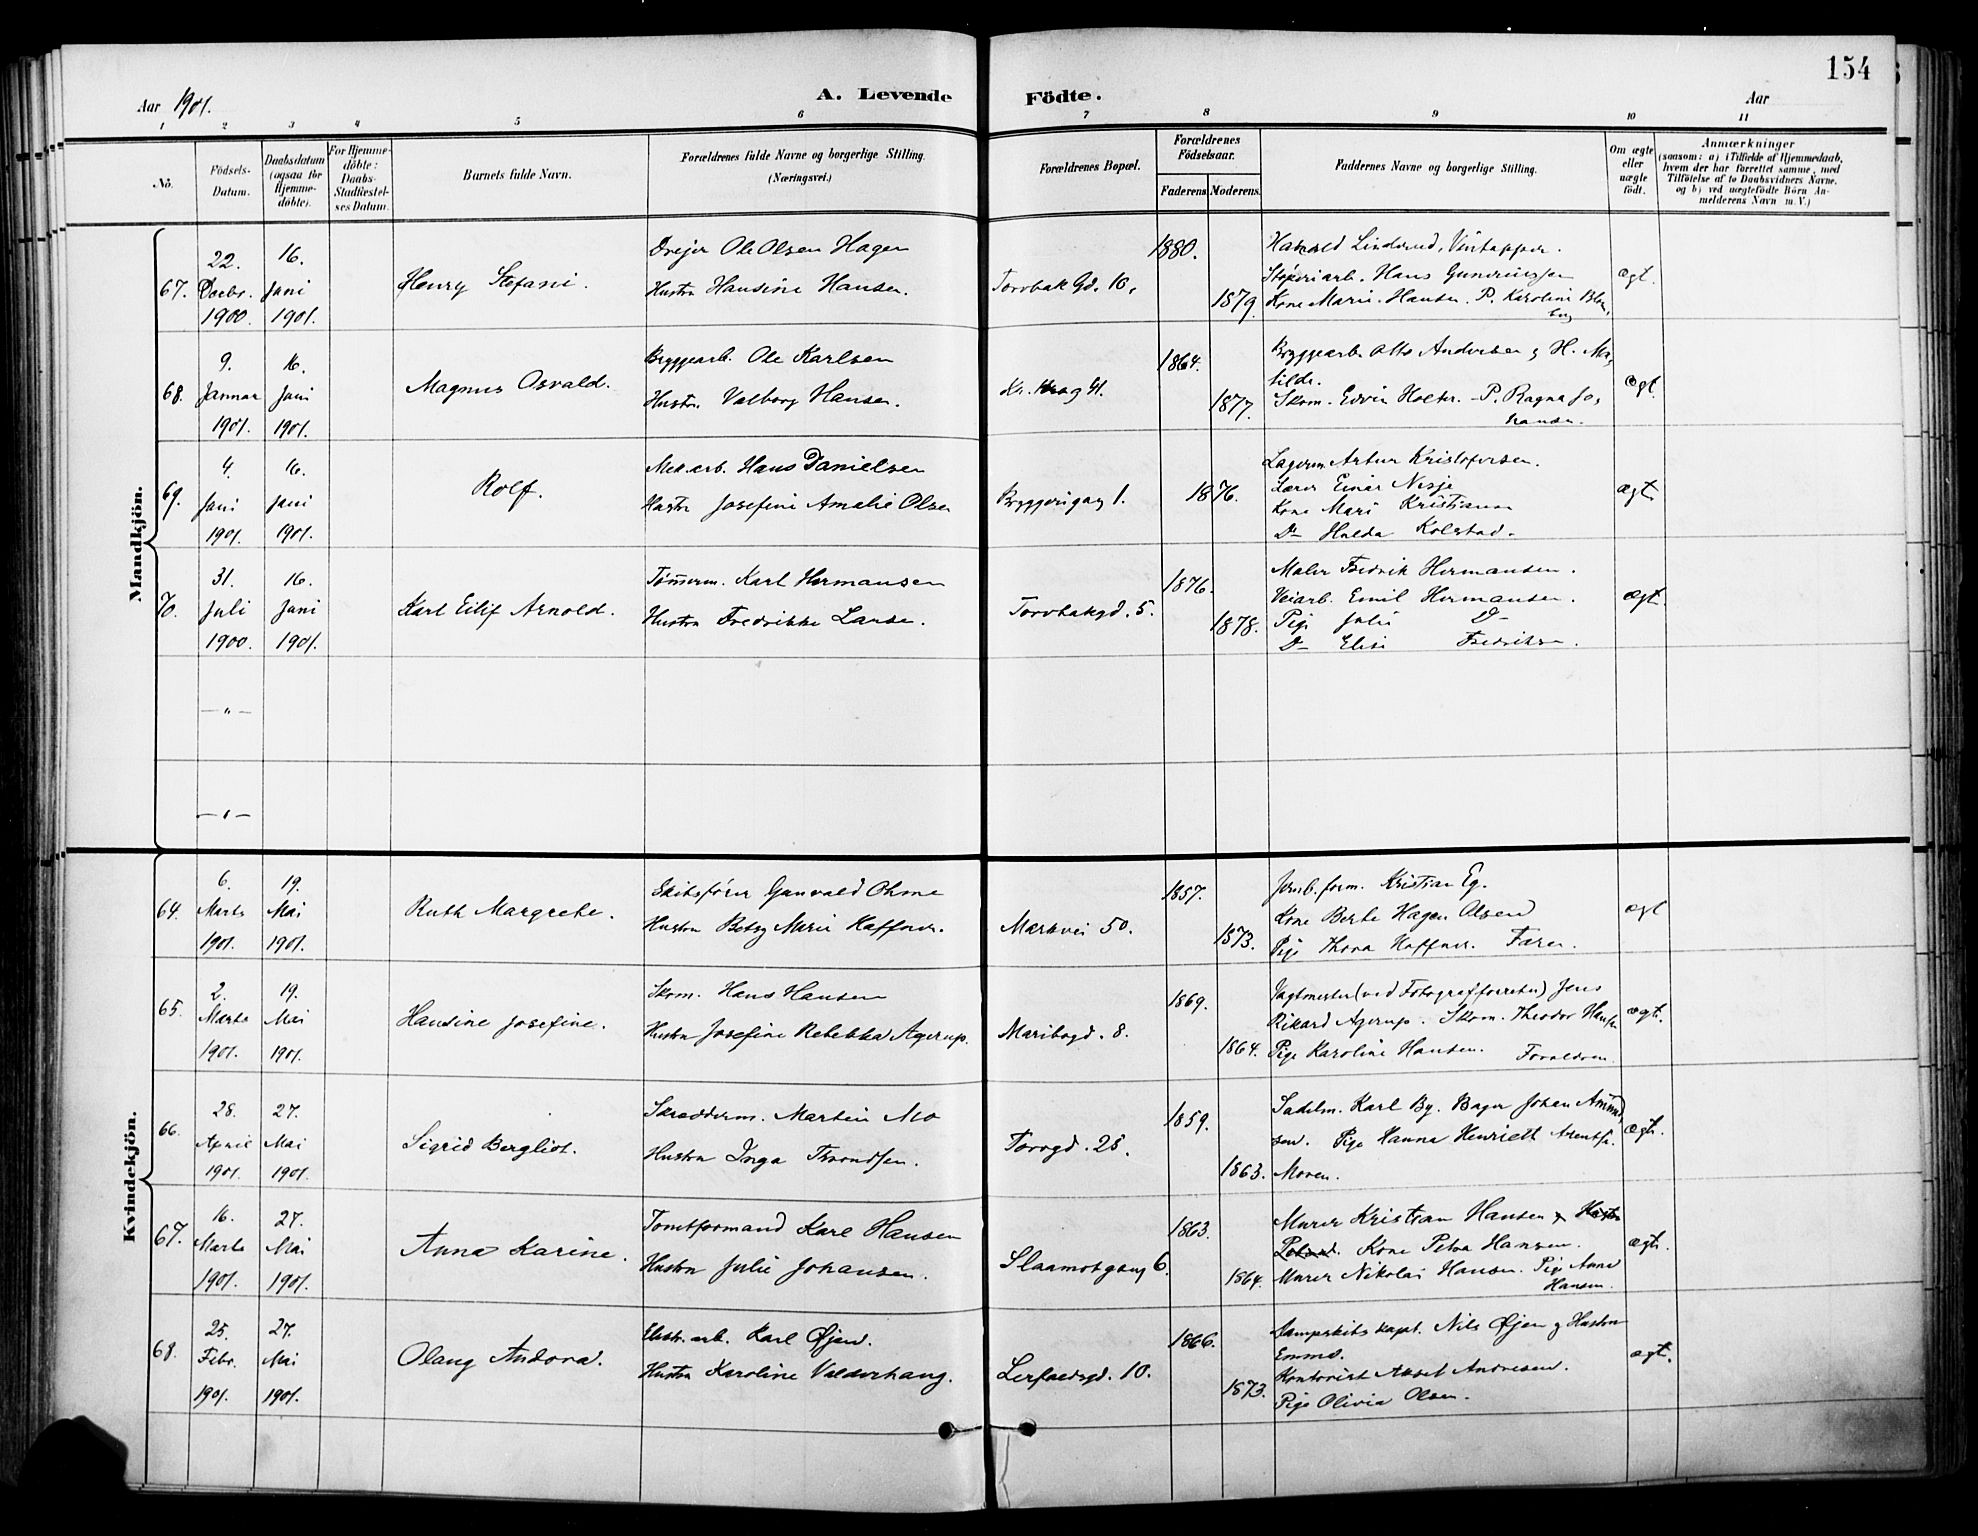 154
Aar 1901.
A. Levende Födte.
Aar
1 2 3 4 5 6 7 8 9 10 11
No.
Födsels-Datum.
Daabsdatum (ogsaa for Hjemme-döbte).
For Hjemme-döbte: Daabs-Stadfæstel-ses Datum.
Barnets fulde Navn.
Forældrenes fulde Navne og borgerlige Stilling.
(Næringsvei.)
Forældrenes Bopæl.
Forældrenes Födselsaar.
Faderens. Moderens.
Faddernes Navne og borgerlige Stilling.
Om ægte eller uægte födt.
Anmærkninger
(saasom: a) i Tilfælde af Hjemmedaab,
hvem der har forrettet samme, med
Tilföielse af to Daabsvidners Navne,
og b) ved uægtefödte Börn An-
melderens Navn m. V.)
Mandkjön.
67. 22. Decbr. 1900. 16. Juni 1901.
Henry Stefani.
Drejer Ole Olsen Hagen
Hustru Hansine Hansen.
Torvbak Gd. 16,
1880.
1879.
Harald Linderud, Vintapper.
Støperiarb. Hans Gundersen
Kone Marie Hansen. P. Karoline Blom,
berg
ægt.
68. 9. Januar 1901. 16. Juni 1901.
Magnus Osvald.
Bryggearb. Ole Karlsen
Hustr. Valborg Hansen.
Kr. Krog 41.
1864.
1877.
Bryggearb. Otto Andersen g H. Ma,
tilde.
Skom. Edvin Holter. P. Ragna Jo,
hansen.
ægt.
69. 4. Juni 1901. 16. Juni 1901.
Rolf.
Mek. arb. Hans Danielsen
Hustr Josefine Amalie Olsen
Bryggerigang 1.
1876.
Lagerm Artur Kristofersen.
Lærer Einar Nesje
Kone Mari Kristianson
D- Hulda Kolstad.
ægt.
70. 31. Juli 1900. 16. Juni 1901.
Karl Eilif Arnold.
Tømmerm. Karl Hermansen
Hustru Fredrikke Larsen.
Torvbakgd. 5.
1876.
1878.
Maler Fredrik Hermansen.
Veiarb. Emil Hermansen.
Pige Julie D-
D- Elise Fredriksen.
ægt.
—"—
—"—
Kvindekjön.
64. 6. Marts 1901. 19. Mai 1901.
Ruth Margrethe.
Skibsfører Gunvald Ohme
Hustru Betzy Marie Haffner.
Markvei 50.
1857.
1873.
Jernb. form. Kristian Eg.
Kone Berte Hagen Olsen
Pige Thora Haffner. Faren.
ægt
65. 2. Marts 1901. 19. Mai 1901.
Hansine Josefine.
Skom. Hans Hansen
Hustru Josefine Rebekka Agerup.
Maribogd. 8.
1869.
1864.
Vagtmester (ved Fotografforretn) Jens
Rikard Agerup. Skom. Theodor Hansen
Pige Karoline Hansen. Forældren.
ægt.
66. 28. April 1901. 27. Mai 1901.
Sigrid Bergliot.
Skrædderm. Martin Mo
Hustru Inga Throndsen.
Torvgd. 28.
1859.
1863.
Sadelm. Karl By. Bager Johan Amund,
sen. Pige Hanna Henriett Arentsen.
Moren.
ægt.
67. 16. Marts 1901. 27. Mai 1901.
Anna Karine.
Tomtformand Karl Hansen
Hustru Julie Johansen.
Slaamotgang 6.
1863.
1864.
Murer Kristian Hansen
Kone Petra Hansen.
Murer Nikolai Hansen. Pige Anne
Hansen.
ægt.
68. 25. Febr. 1901. 27. Mai 1901.
Olaug Andora.
Elektr. arb. Karl Øjen.
Hustru Karoline Valderhaug.
Lerfaldsgd. 10.
1866.
1873.
Dampskibs kapt. Nils Øjen g Hustru
Emma.
Kontorist Aksel Andresen.
Pige Olivia Olsen.
ægt.